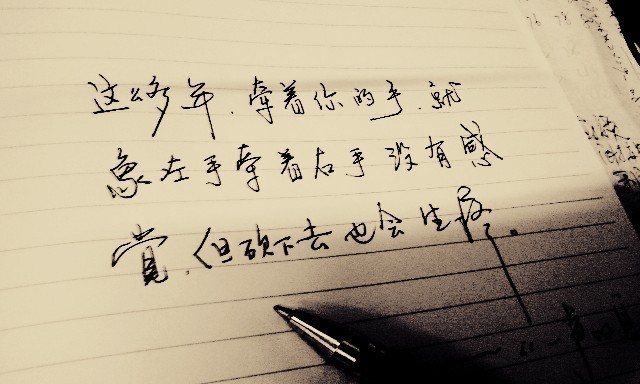 这么多年,牵着你的手,就
象左手牵着右手没有感
觉,但砍下去也会生疼。